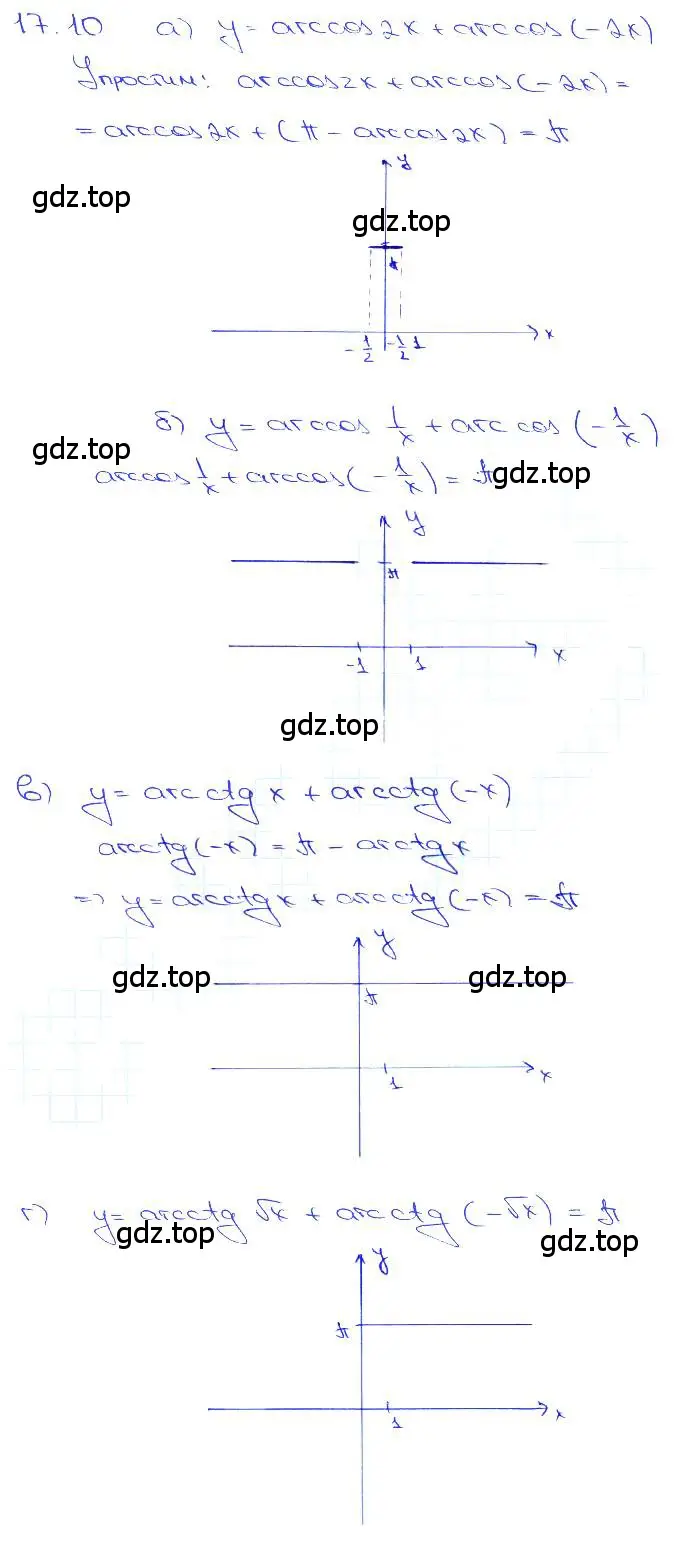 17.10 а) y = arccos 2x + arccos(-2x)
Упростим: arccos 2x + arccos(-2x) =
= arccos 2x + (π - arccos 2x) = π
y
gdz.top
gdz.top
π
x
-1/2 -1/2 1
б) y = arccos 1/x + arccos (-1/x)
gdz.top
arccos 1/x + arccos(-1/x) = π
gdz.top
y
π
x
-1 1
gdz.top
в) y = arcctg x + arcctg(-x)
arcctg(-x) = π - arctg x
=> y = arcctg x + arcctg(-x) = π
y
gdz.top gdz.top
π
x
1
г) y = arcctg √x + arcctg (-√x) = π
gdz.top gdz.top
y
π
x
1